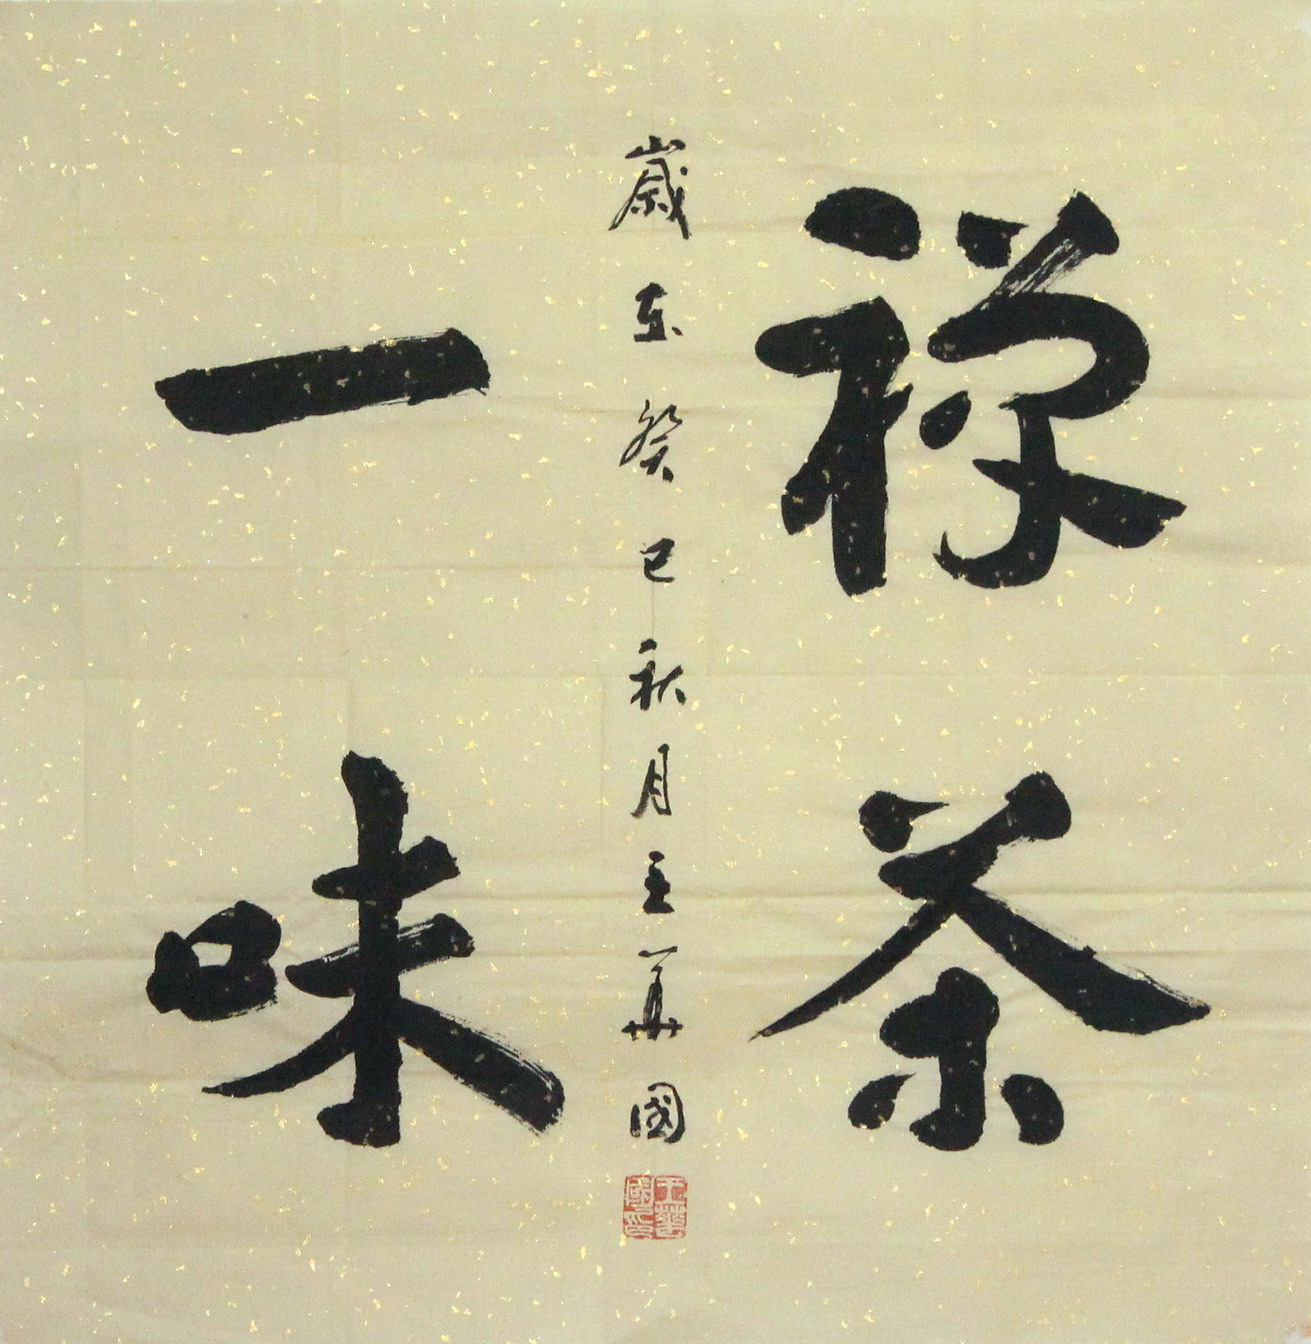 禅茶
一味
歲在癸巳秋月王華國
王華國印